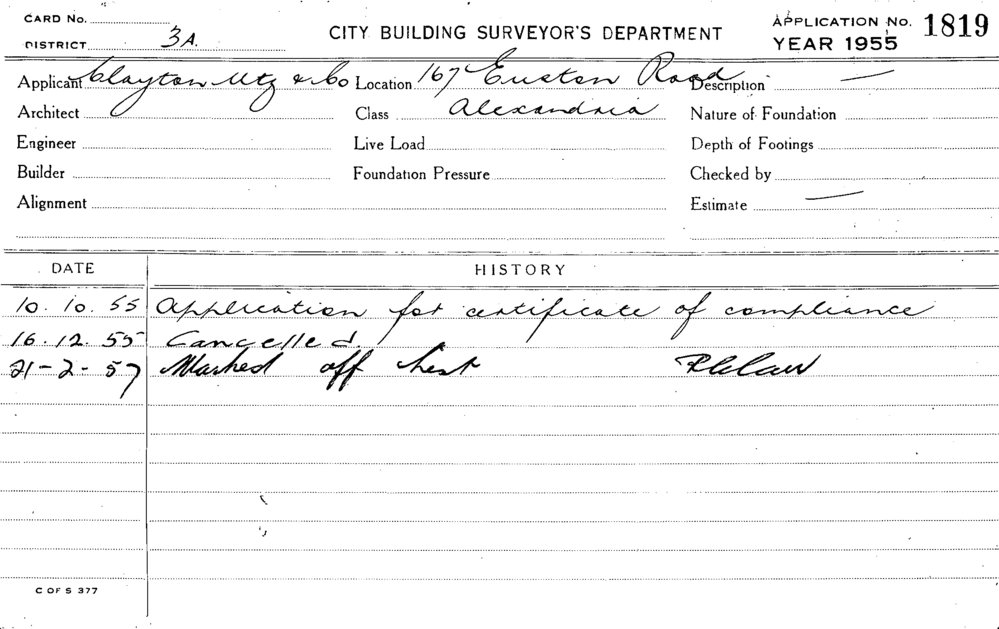 CARD No.
DISTRICT 3A.
CITY BUILDING SURVEYOR'S DEPARTMENT
APPLICATION No. 1819
YEAR 1955
Applicant Clayton Utz & Co Location 167 Euston Road Description —
Architect Class Alexandria Nature of Foundation
Engineer Live Load Depth of Footings
Builder Foundation Pressure Checked by
Alignment Estimate —
DATE HISTORY
10.10.55 Application for certificate of compliance
16.12.55 Cancelled.
21-2-57 Marked off list
C OF S 377